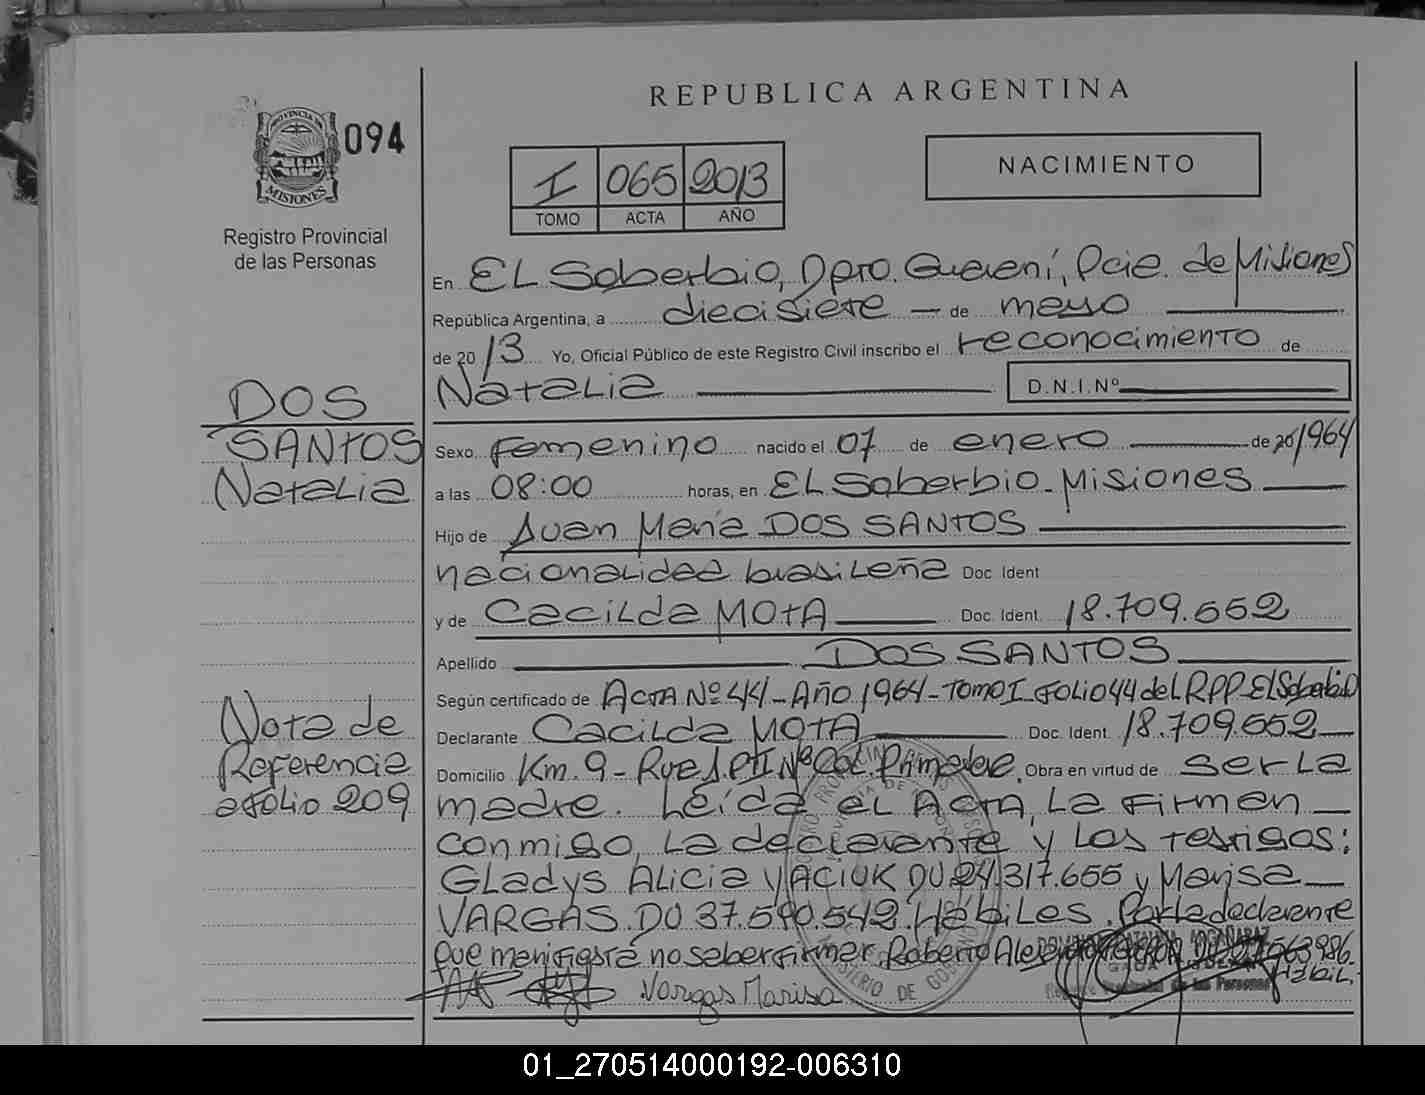 REPUBLICA ARGENTINA
PROVINCIA DE
MISIONES
094
Registro Provincial
de las Personas
I 065 2013
TOMO ACTA AÑO
NACIMIENTO
En EL Soberbio, Dpto. Guaraní, Pcia. de Misiones
República Argentina, a diecisiete de mayo
de 2013 Yo, Oficial Público de este Registro Civil inscribo el reconocimiento de
Natalia D.N.I.Nº
DOS
SANTOS
Natalia
Sexo Femenino nacido el 07 de enero de 20 1964
a las 08:00 horas, en EL Soberbio - Misiones
Hijo de Juan María DOS SANTOS
nacionalidad brasileña Doc. Ident
y de Cacilda MOTA Doc. Ident. 18.709.652
Apellido DOS SANTOS
Según certificado de ACTA Nº 44 - Año 1964 - Tomo I Folio 44 del RPP El Soberbio
Declarante Cacilda MOTA Doc. Ident. 18.709.652
Domicilio Km. 9 - Col. Primavera. Obra en virtud de ser La
madre. Leída el Acta, La firman
conmigo, La declarante y Los testigos:
Gladys Alicia YACIUK DU 24.317.655 y Marisa
VARGAS. DU 37.590.542. Hábiles. Por la declarante
que manifiesta no saber firmar, Roberto
Hábil.
Vargas Marisa
Nota de
Referencia
a folio 209
MINISTERIO DE GOBIERNO
01_270514000192-006310